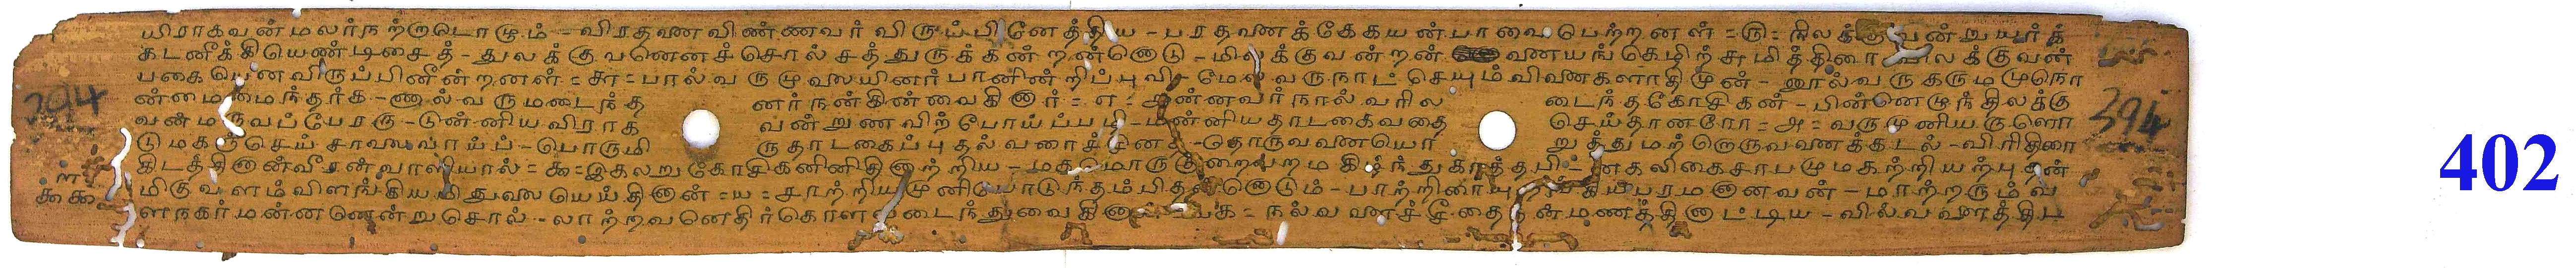 யிராகவன்மலர்நற்றாளொடும் - விரதவண விண்ணவர் விருப்பி னேத்திய - பரதவணக்கேகயன்பாவை பெற்றனள் = ரு = இலக்கு வன்றுயர்க்
கடனீக்கியெண்டிசைத் - துலக்குவணெனச்சொல்சத்துருக்கன்றன்னொடு - மிலக்குவன்றன் வணயங்கெழிற்சுமித்திரை யிலக்குவன்
பகையெனவிருப்பினீன்றனள் = சா = பால்வருமூவலயினர் பானின்றிப்புவி மேல்வருநாட்செயும்விவணகளாதிமுன் - னூல்வருகருமமுநொ
ன்மைமைந்தர்க - ணால்வருமடைந்த னர்நன்கின்வைகினார் = எ = அன்னவர்நால்வரில டைந்தகோசிகன் - பின்னெழுந்திலக்கு
வன்மருவப்பேரரு - டுன்னியவிராக வன்றுணவிற்போய்ப்படி - மன்னியதாடகைவதை செய்தானரோ = அ = வருமுனியருளொ
டுமகஞ்செய்சாலைவாய்ப் - பொருமி ருதாடகைப்புதல்வரைச்சின - தொருவவணயொ றுத்துமற்றொருவவணக்கடல் - விரிதிரை
கிடத்தினான்வீரன்வாளியால் = கூ = இகலறுகோசிகனினிதினாற்றிய - மகமொருகுறைவறமகிழ்ந்துகாத்தபி - னகலிகைசாபமுமகற்றியற்புதன்
மிகுவளம்விளங்கியமிதுலையெய்தினான் = ய = சாற்றியமுனியொடுந்தம்பி னொடும் - பாற்றினா பரமனானவன் - மாற்றரும்வ
ளநகர்மன்னனென்றுசொல் - லாற்றவனெதிர்கொளவடைந்துவைகினான் = யக = நல்வவணச்சீதைதன்மணத்தினாட்டிய - வில்வவளத்திட
394
394
402